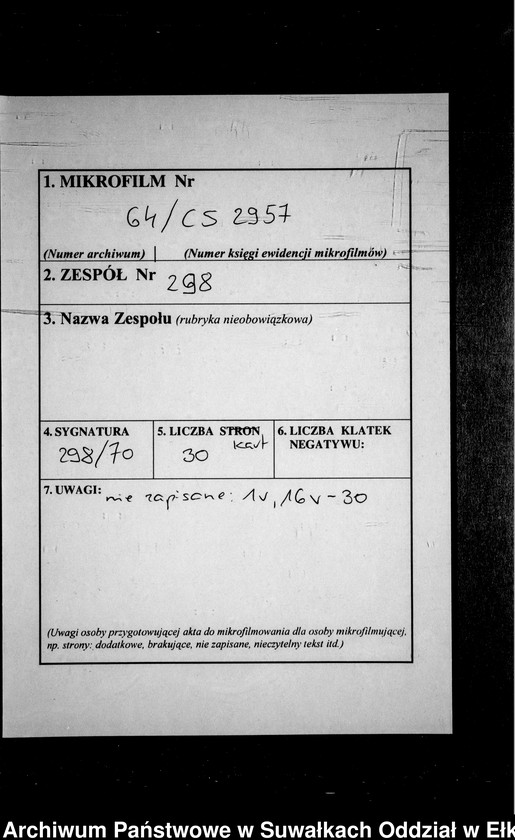 1. MIKROFILM Nr
64/CS 2957
(Numer archiwum) (Numer księgi ewidencji mikrofilmów)
2. ZESPÓŁ Nr 298
3. Nazwa Zespołu (rubryka nieobowiązkowa)
4. SYGNATURA
298/70
5. LICZBA STRON
kart
30
6. LICZBA KLATEK
NEGATYWU:
7. UWAGI: nie zapisane: 1v, 16v - 30
(Uwagi osoby przygotowującej akta do mikrofilmowania dla osoby mikrofilmującej,
np. strony: dodatkowe, brakujące, nie zapisane, nieczytelny tekst itd.)
Archiwum Państwowe w Suwałkach Oddział w Ełk